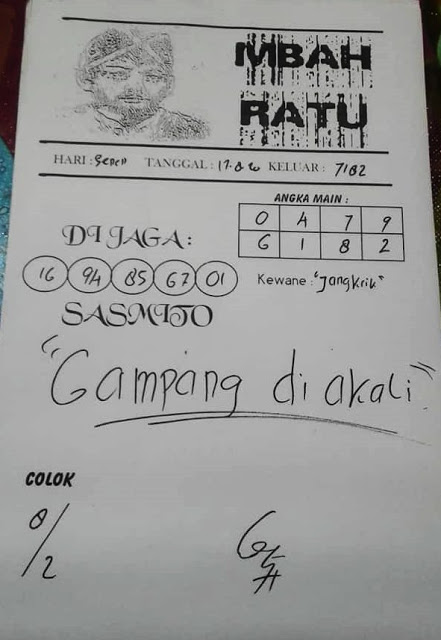 MBAH
RATU
HARI : Senen TANGGAL : 17-8-20 KELUAR : 7182
ANGKA MAIN :
0 4 7 9
6 1 8 2
DI JAGA :
16 94 85 67 01
Kewane : "Jangkrik"
SASMITO
"Gampang di akali"
COLOK
8/2